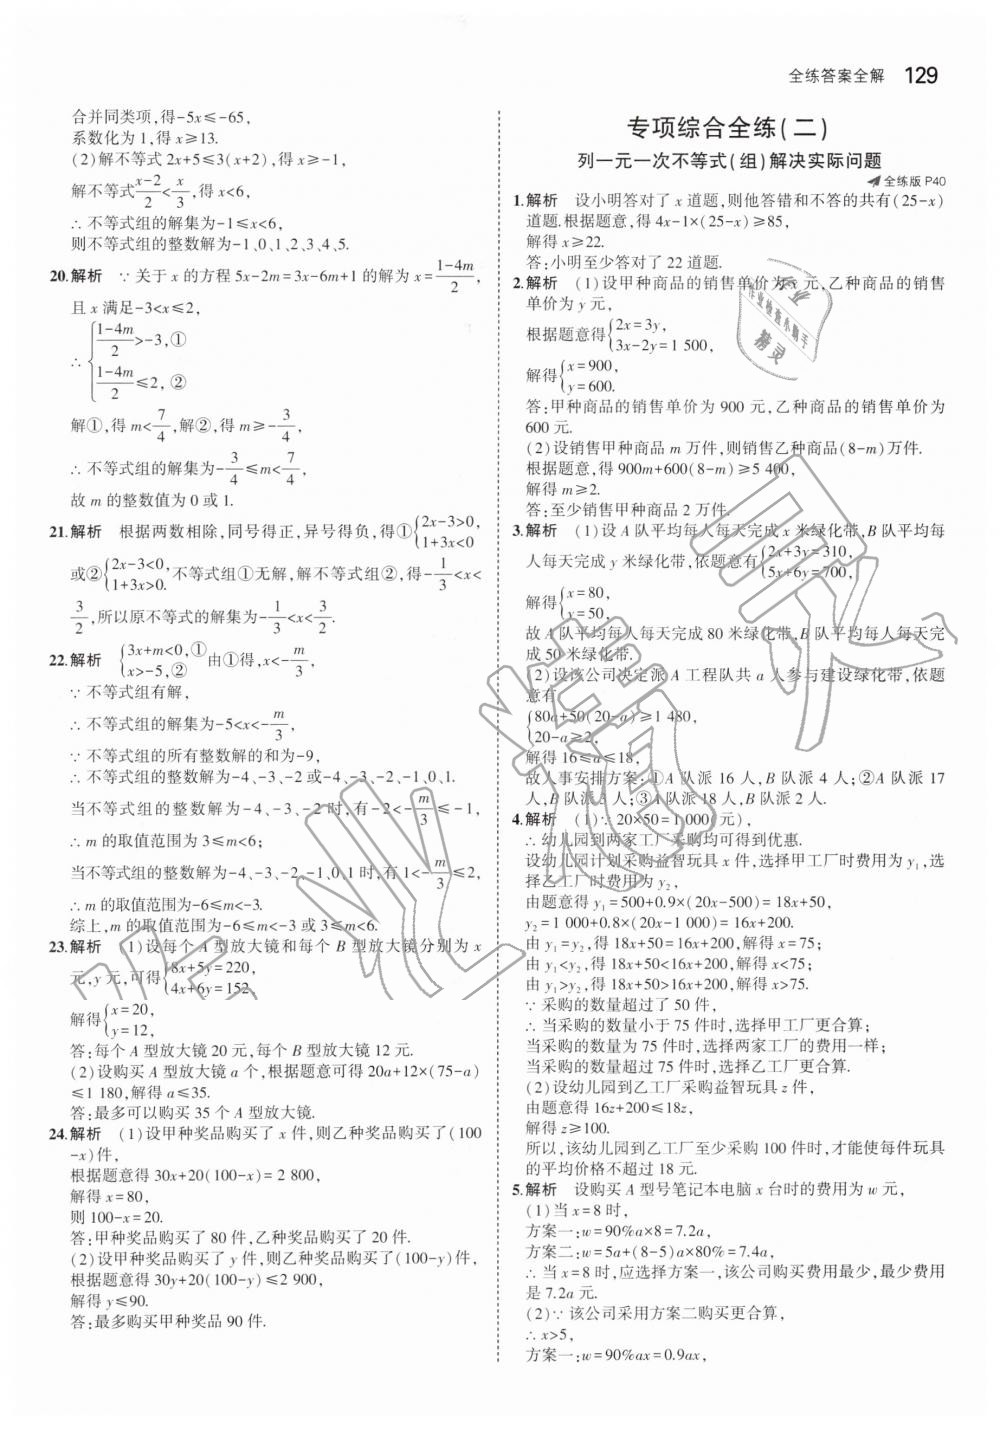 全练答案全解 129
合并同类项,得-5x≤-65,
系数化为1,得x≥13.
(2)解不等式2x+5≤3(x+2),得x≥-1,
解不等式\frac{x-2}{2}<\frac{x}{3},得x<6,
∴不等式组的解集为-1≤x<6,
则不等式组的整数解为-1、0、1、2、3、4、5.
20.解析 ∵关于x的方程5x-2m=3x-6m+1的解为x=\frac{1-4m}{2},
且x满足-3<x≤2,
∴{\frac{1-4m}{2}>-3,①
\frac{1-4m}{2}≤2,②
解①,得m<\frac{7}{4},解②,得m≥-\frac{3}{4},
∴不等式组的解集为-\frac{3}{4}≤m<\frac{7}{4},
故m的整数值为0或1.
21.解析 根据两数相除,同号得正,异号得负,得①{2x-3>0, 1+3x<0
或②{2x-3<0, 1+3x>0.不等式组①无解,解不等式组②,得-\frac{1}{3}<x<
\frac{3}{2},所以原不等式的解集为-\frac{1}{3}<x<\frac{3}{2}.
22.解析 {3x+m<0,① x>-5,②由①得,x<-\frac{m}{3},
∵不等式组有解,
∴不等式组的解集为-5<x<-\frac{m}{3},
∵不等式组的所有整数解的和为-9,
∴不等式组的整数解为-4、-3、-2或-4、-3、-2、-1、0、1.
当不等式组的整数解为-4、-3、-2时,有-2<-\frac{m}{3}≤-1,
∴m的取值范围为3≤m<6;
当不等式组的整数解为-4、-3、-2、-1、0、1时,有1<-\frac{m}{3}≤2,
∴m的取值范围为-6≤m<-3.
综上,m的取值范围为-6≤m<-3或3≤m<6.
23.解析 (1)设每个A型放大镜和每个B型放大镜分别为x
元,y元,可得{8x+5y=220, 4x+6y=152,
解得{x=20, y=12,
答:每个A型放大镜20元,每个B型放大镜12元.
(2)设购买A型放大镜a个,根据题意可得20a+12×(75-a)
≤1 180,解得a≤35.
答:最多可以购买35个A型放大镜.
24.解析 (1)设甲种奖品购买了x件,则乙种奖品购买了(100
-x)件,
根据题意得30x+20(100-x)=2 800,
解得x=80,
则100-x=20.
答:甲种奖品购买了80件,乙种奖品购买了20件.
(2)设甲种奖品购买了y件,则乙种奖品购买了(100-y)件,
根据题意得30y+20(100-y)≤2 900,
解得y≤90.
答:最多购买甲种奖品90件.
专项综合全练(二)
列一元一次不等式(组)解决实际问题
全练版P40
1.解析 设小明答对了x道题,则他答错和不答的共有(25-x)
道题.根据题意,得4x-1×(25-x)≥85,
解得x≥22.
答:小明至少答对了22道题.
2.解析 (1)设甲种商品的销售单价为x元,乙种商品的销售
单价为y元,
根据题意得{2x=3y, 3x-2y=1 500,
解得{x=900, y=600.
答:甲种商品的销售单价为900元,乙种商品的销售单价为
600元.
(2)设销售甲种商品m万件,则销售乙种商品(8-m)万件.
根据题意,得900m+600(8-m)≥5 400,
解得m≥2.
答:至少销售甲种商品2万件.
3.解析 (1)设A队平均每人每天完成x米绿化带,B队平均每
人每天完成y米绿化带,依题意有{2x+3y=310, 5x+6y=700,
解得{x=80, y=50,
故A队平均每人每天完成80米绿化带,B队平均每人每天完
成50米绿化带.
(2)设该公司决定派A工程队共a人参与建设绿化带,依题
意有
{80a+50(20-a)≥1 480, 20-a≥2,
解得16≤a≤18,
故人事安排方案:①A队派16人,B队派4人;②A队派17
人,B队派3人;③A队派18人,B队派2人.
4.解析 (1)∵20×50=1 000(元),
∴幼儿园到两家工厂采购均可得到优惠.
设幼儿园计划采购益智玩具x件,选择甲工厂时费用为y₁,选
择乙工厂时费用为y₂,
由题意得y₁=500+0.9×(20x-500)=18x+50,
y₂=1 000+0.8×(20x-1 000)=16x+200.
由y₁=y₂,得18x+50=16x+200,解得x=75;
由y₁<y₂,得18x+50<16x+200,解得x<75;
由y₁>y₂,得18x+50>16x+200,解得x>75.
∵采购的数量超过了50件,
∴当采购的数量小于75件时,选择甲工厂更合算;
当采购的数量为75件时,选择两家工厂的费用一样;
当采购的数量超过75件时,选择乙工厂更合算.
(2)设幼儿园到乙工厂采购益智玩具z件,
由题意得16z+200≤18z,
解得z≥100.
所以,该幼儿园到乙工厂至少采购100件时,才能使每件玩具
的平均价格不超过18元.
5.解析 设购买A型号笔记本电脑x台时的费用为w元,
(1)当x=8时,
方案一:w=90%a×8=7.2a,
方案二:w=5a+(8-5)a×80%=7.4a,
∴当x=8时,应选择方案一,该公司购买费用最少,最少费用
是7.2a元.
(2)∵该公司采用方案二购买更合算,
∴x>5,
方案一:w=90%ax=0.9ax,
作业检查小助手
精灵